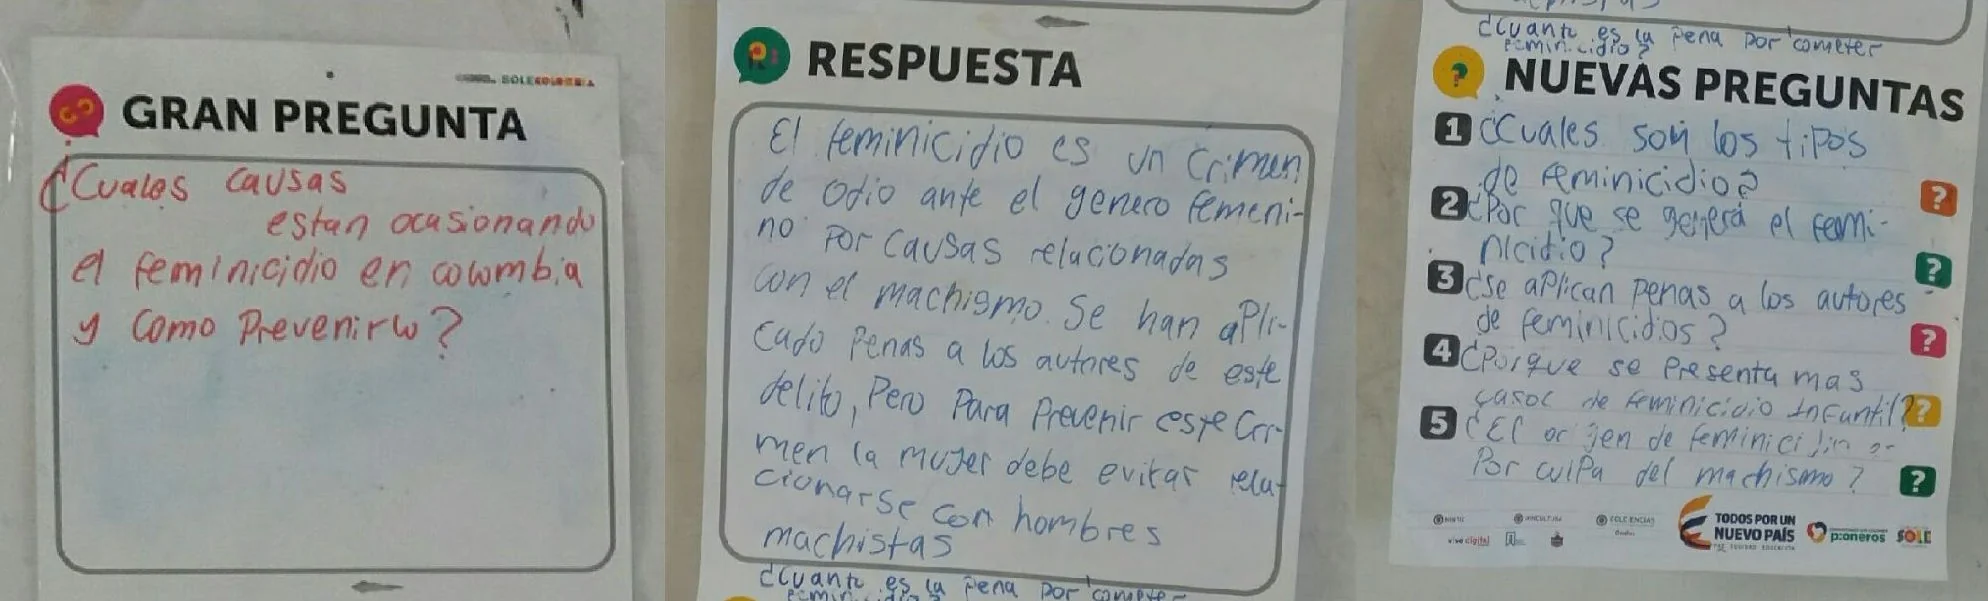 SOLECOLOMBIA
GRAN PREGUNTA
¿Cuales causas
estan ocasionando
el feminicidio en colombia
y como Prevenirlo?
RESPUESTA
El feminicidio es un Crimen
de odio ante el genero femeni-
no Por causas relacionadas
con el machismo. Se han aPli-
cado Penas a los autores de este
delito, Pero Para Prevenir este Cri-
men la mujer debe evitar rela-
cionarse con hombres
machistas
¿Cuanto es la Pena Por cometer
¿Cuanto es la Pena Por cometer
feminicidio?
NUEVAS PREGUNTAS
1 ¿Cuales son los tiPos
de feminicidio?
2 ¿Por que se genera el femi-
nicidio?
3 ¿se aPlican Penas a los autores
de feminicidios?
4 ¿Porque se Presenta mas
casos de feminicidio Infantil?
5 ¿El origen de feminicidio es
Por culPa del machismo?
TODOS POR UN
NUEVO PAÍS
PAZ EQUIDAD EDUCACIÓN
vive digital
pioneros
SOLE